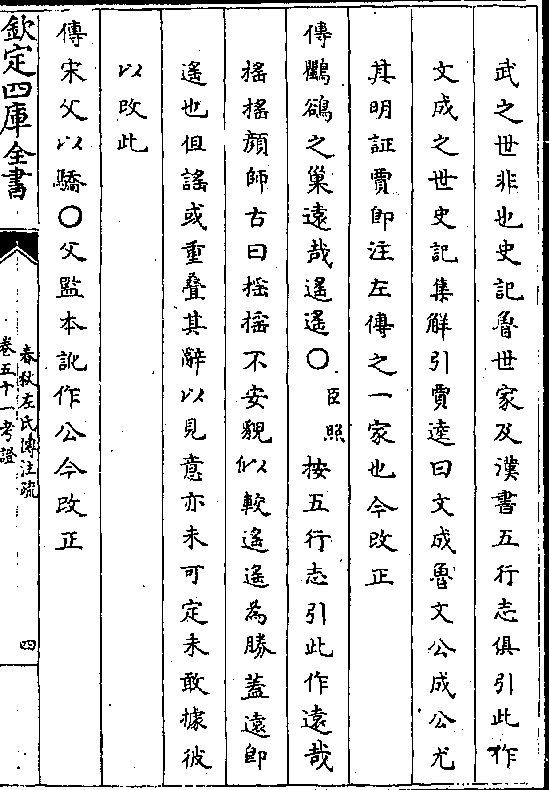 武之世非也史記魯世家及漢書五行志俱引此作
文成之世史記集解引賈逵曰文成魯文公成公尤
其明証賈即注左傳之一家也今改正
傳鸜鵒之巢遠哉遥遥〇臣照按五行志引此作遠哉
揺揺顔師古曰揺揺不安貌似較遥遥為勝蓋遠即
遥也但謡或重疊其辭以見意亦未可定未敢據彼
以改此
傳宋父以驕〇父監本訛作公今改正
欽定四庫全書
春秋左氏傳注疏
卷五十一考證
四